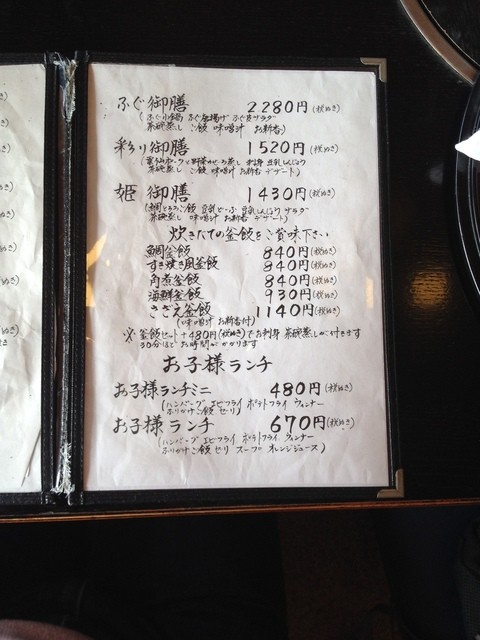 ふぐ御膳 2280円(税ぬき)
(ふぐ小鍋 ふぐ唐揚げ ふぐ皮サラダ
茶碗蒸し ご飯 味噌汁 お新香)
彩り御膳 1520円(税ぬき)
と野菜 蒸し お刺身 豆乳しんじょう
茶碗蒸し ご飯 味噌汁 お新香 デザート)
姫御膳 1430円(税ぬき)
(鯛とろろご飯 豆乳 豆乳しんじょう サラダ
茶碗蒸し 味噌汁 お新香 デザート)
炊きたての釜飯をご賞味下さい
鯛釜飯 840円(税ぬき)
すき焼き風釜飯 840円(税ぬき)
角煮釜飯 840円(税ぬき)
海鮮釜飯 930円(税ぬき)
さざえ釜飯 1140円(税ぬき)
(味噌汁 お新香付)
※釜飯セット+480円(税ぬき)でお刺身 茶碗蒸しが付きます
30分ほどお時間がかかります
お子様ランチ
お子様ランチミニ 480円(税ぬき)
(ハンバーグ エビフライ ポテトフライ ウィンナー
ふりかけご飯 ゼリー)
お子様ランチ 670円(税ぬき)
(ハンバーグ エビフライ ポテトフライ ウィンナー
ふりかけご飯 ゼリー スープ オレンジジュース)